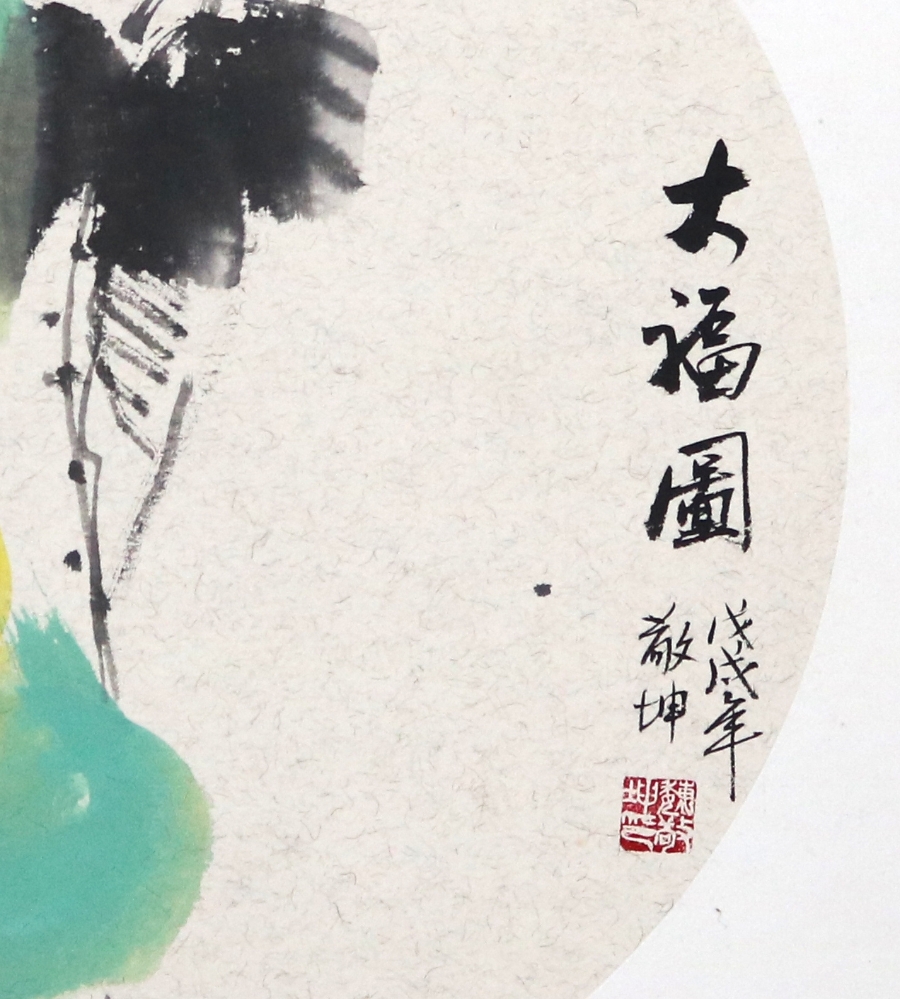 大福圖
戊戌年
敬坤